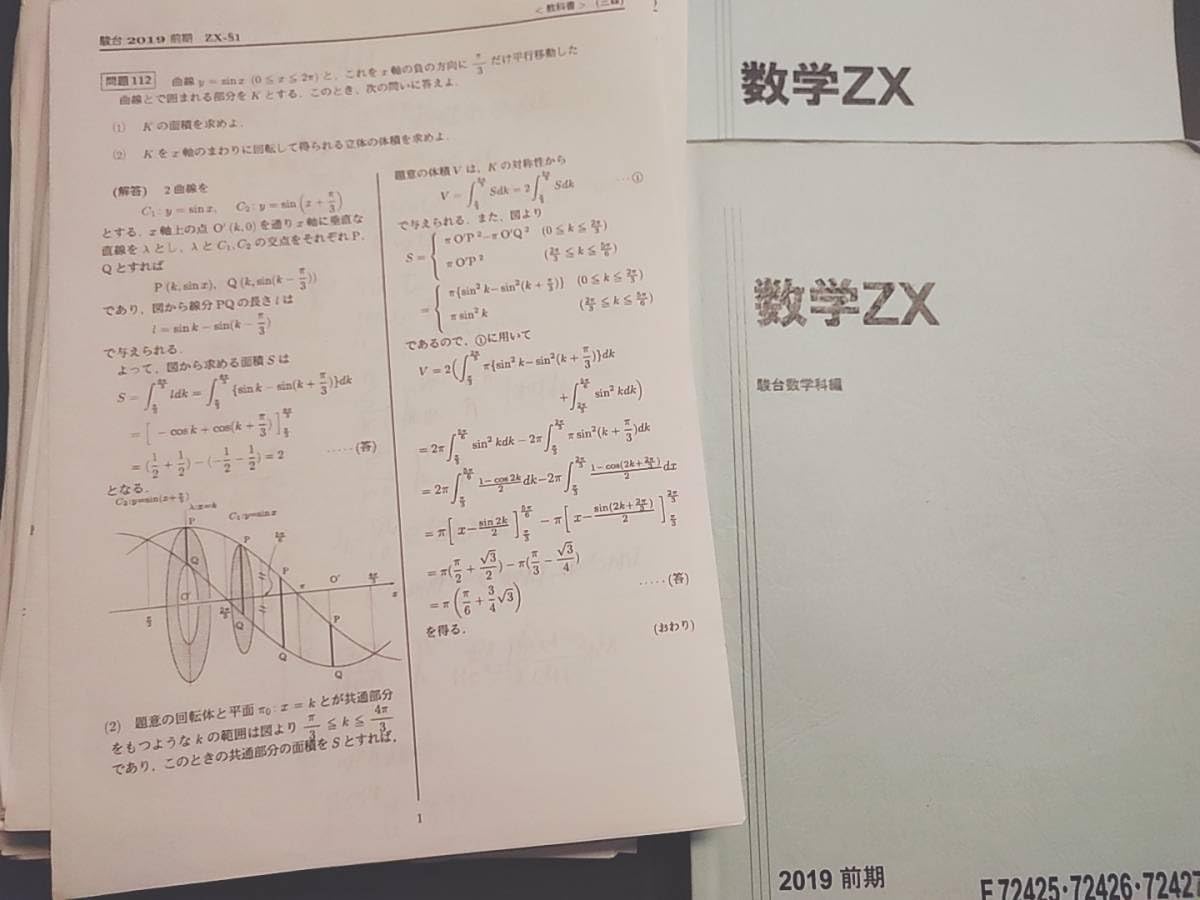 <教科書> (三森)
駿台 2019 前期 ZX-S1
問題112 曲線 y = sin x (0 ≦ x ≦ 2π) と, これを x 軸の負の方向に π/3 だけ平行移動した
曲線とで囲まれる部分を K とする. このとき, 次の問いに答えよ.
(1) K の面積を求めよ.
(2) K を x 軸のまわりに回転して得られる立体の体積を求めよ.
(解答) 2曲線を
C₁ : y = sin x, C₂ : y = sin(x + π/3)
とする. x 軸上の点 O′(k, 0) を通り x 軸に垂直な
直線を λ とし, λ と C₁, C₂ の交点をそれぞれ P,
Q とすれば
P(k, sin x), Q(k, sin(k − π/3))
であり, 図から線分 PQ の長さ l は
l = sin k − sin(k − π/3)
で与えられる.
よって, 図から求める面積 S は
S = ∫ ldk = ∫ {sin k − sin(k + π/3)}dk
= [ − cos k + cos(k + π/3) ]
= (1/2 + 1/2) − (−1/2 − 1/2) = 2 ·····(答)
となる.
C₂:y=sin(x+π/3)
λ:x=k
C₁:y=sin x
P
P
P
O′
Q
O′
π
x
Q
P
Q
Q
(2) 題意の回転体と平面 π₀ : x = k とが共通部分
をもつような k の範囲は図より π/3 ≦ k ≦ 4π/3
であり, このときの共通部分の面積を S とすれば,
題意の体積 V は, K の対称性から
V = ∫ Sdk = 2∫ Sdk ···①
で与えられる. また, 図より
S = { πO′P² − πO′Q² (0 ≦ k ≦ 2π/3)
πO′P² (2π/3 ≦ k ≦ 5π/6)
= { π{sin² k − sin²(k + π/3)} (0 ≦ k ≦ 2π/3)
π sin² k (2π/3 ≦ k ≦ 5π/6)
であるので, ①に用いて
V = 2(∫ π{sin² k − sin²(k + π/3)}dk
+ ∫ sin² kdk)
= 2π∫ sin² kdk − 2π∫ π sin²(k + π/3)dk
= 2π∫ (1−cos 2k)/2 dk − 2π∫ (1−cos(2k+2π/3))/2 dx
= π[ x − sin 2k/2 ] − π[ x − sin(2k+2π/3)/2 ]
= π(π/2 + √3/2) − π(π/3 − √3/4)
= π(π/6 + 3/4 √3) ·····(答)
を得る. (おわり)
1
数学ZX
数学ZX
駿台数学科編
2019 前期
F 72425·72426·72427